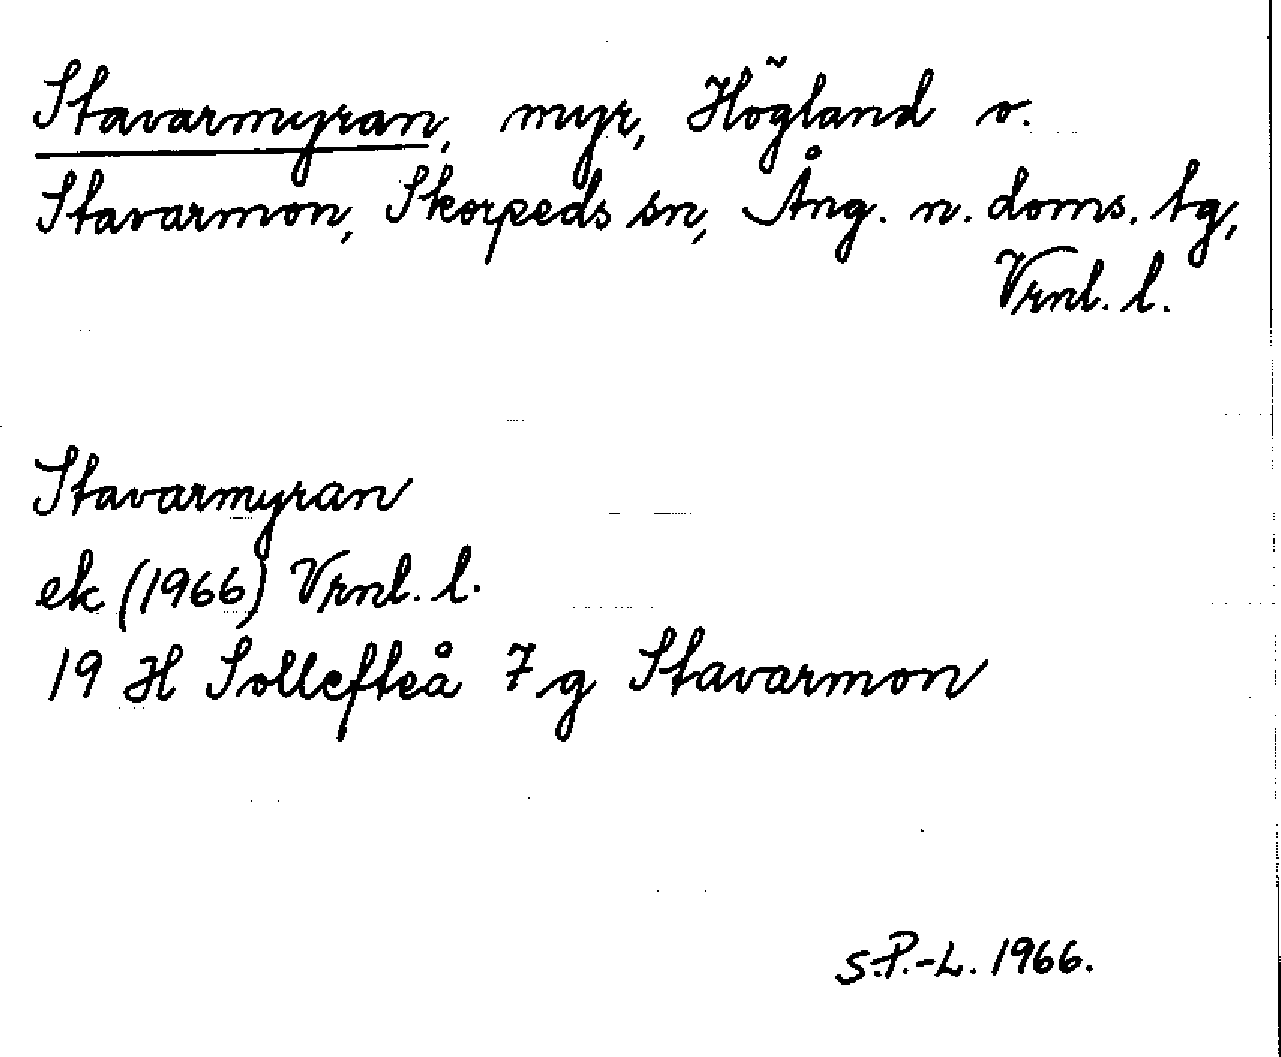 Stavarmyran, myr, Högland o.
Stavarmon, Skorpeds sn, Ång. n. doms. tg,
Vrnl. l.
Stavarmyran
ek (1966) Vrnl. l.
19 H Sollefteå 7 g Stavarmon
S.P.-L. 1966.